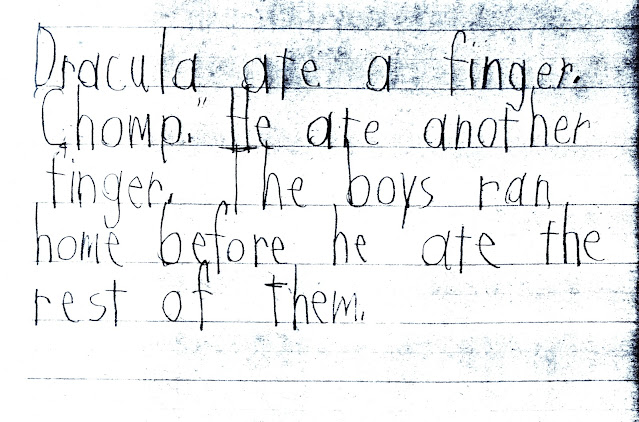 Dracula ate a finger.
Chomp." He ate another
finger. The boys ran
home before he ate the
rest of them.